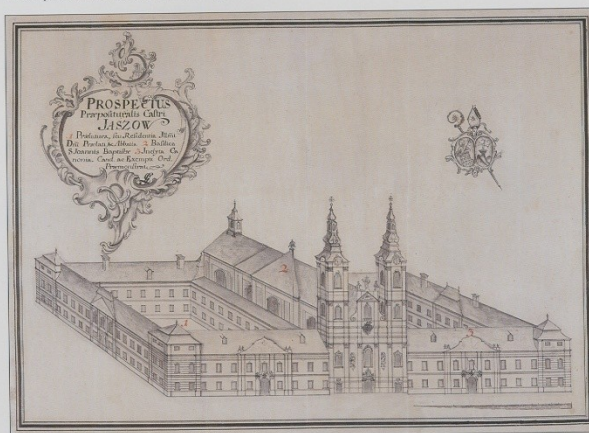 PROSPECTUS
Præposituralis Castri
JASZOW
1 Præfatura, seu Residentia
Dni Prælati & Abbatis 2 Basilica
S Joannis Baptistæ 3 Ca-
nonia Cand ac Exempti Ord
Præmonstrat
2
1
3